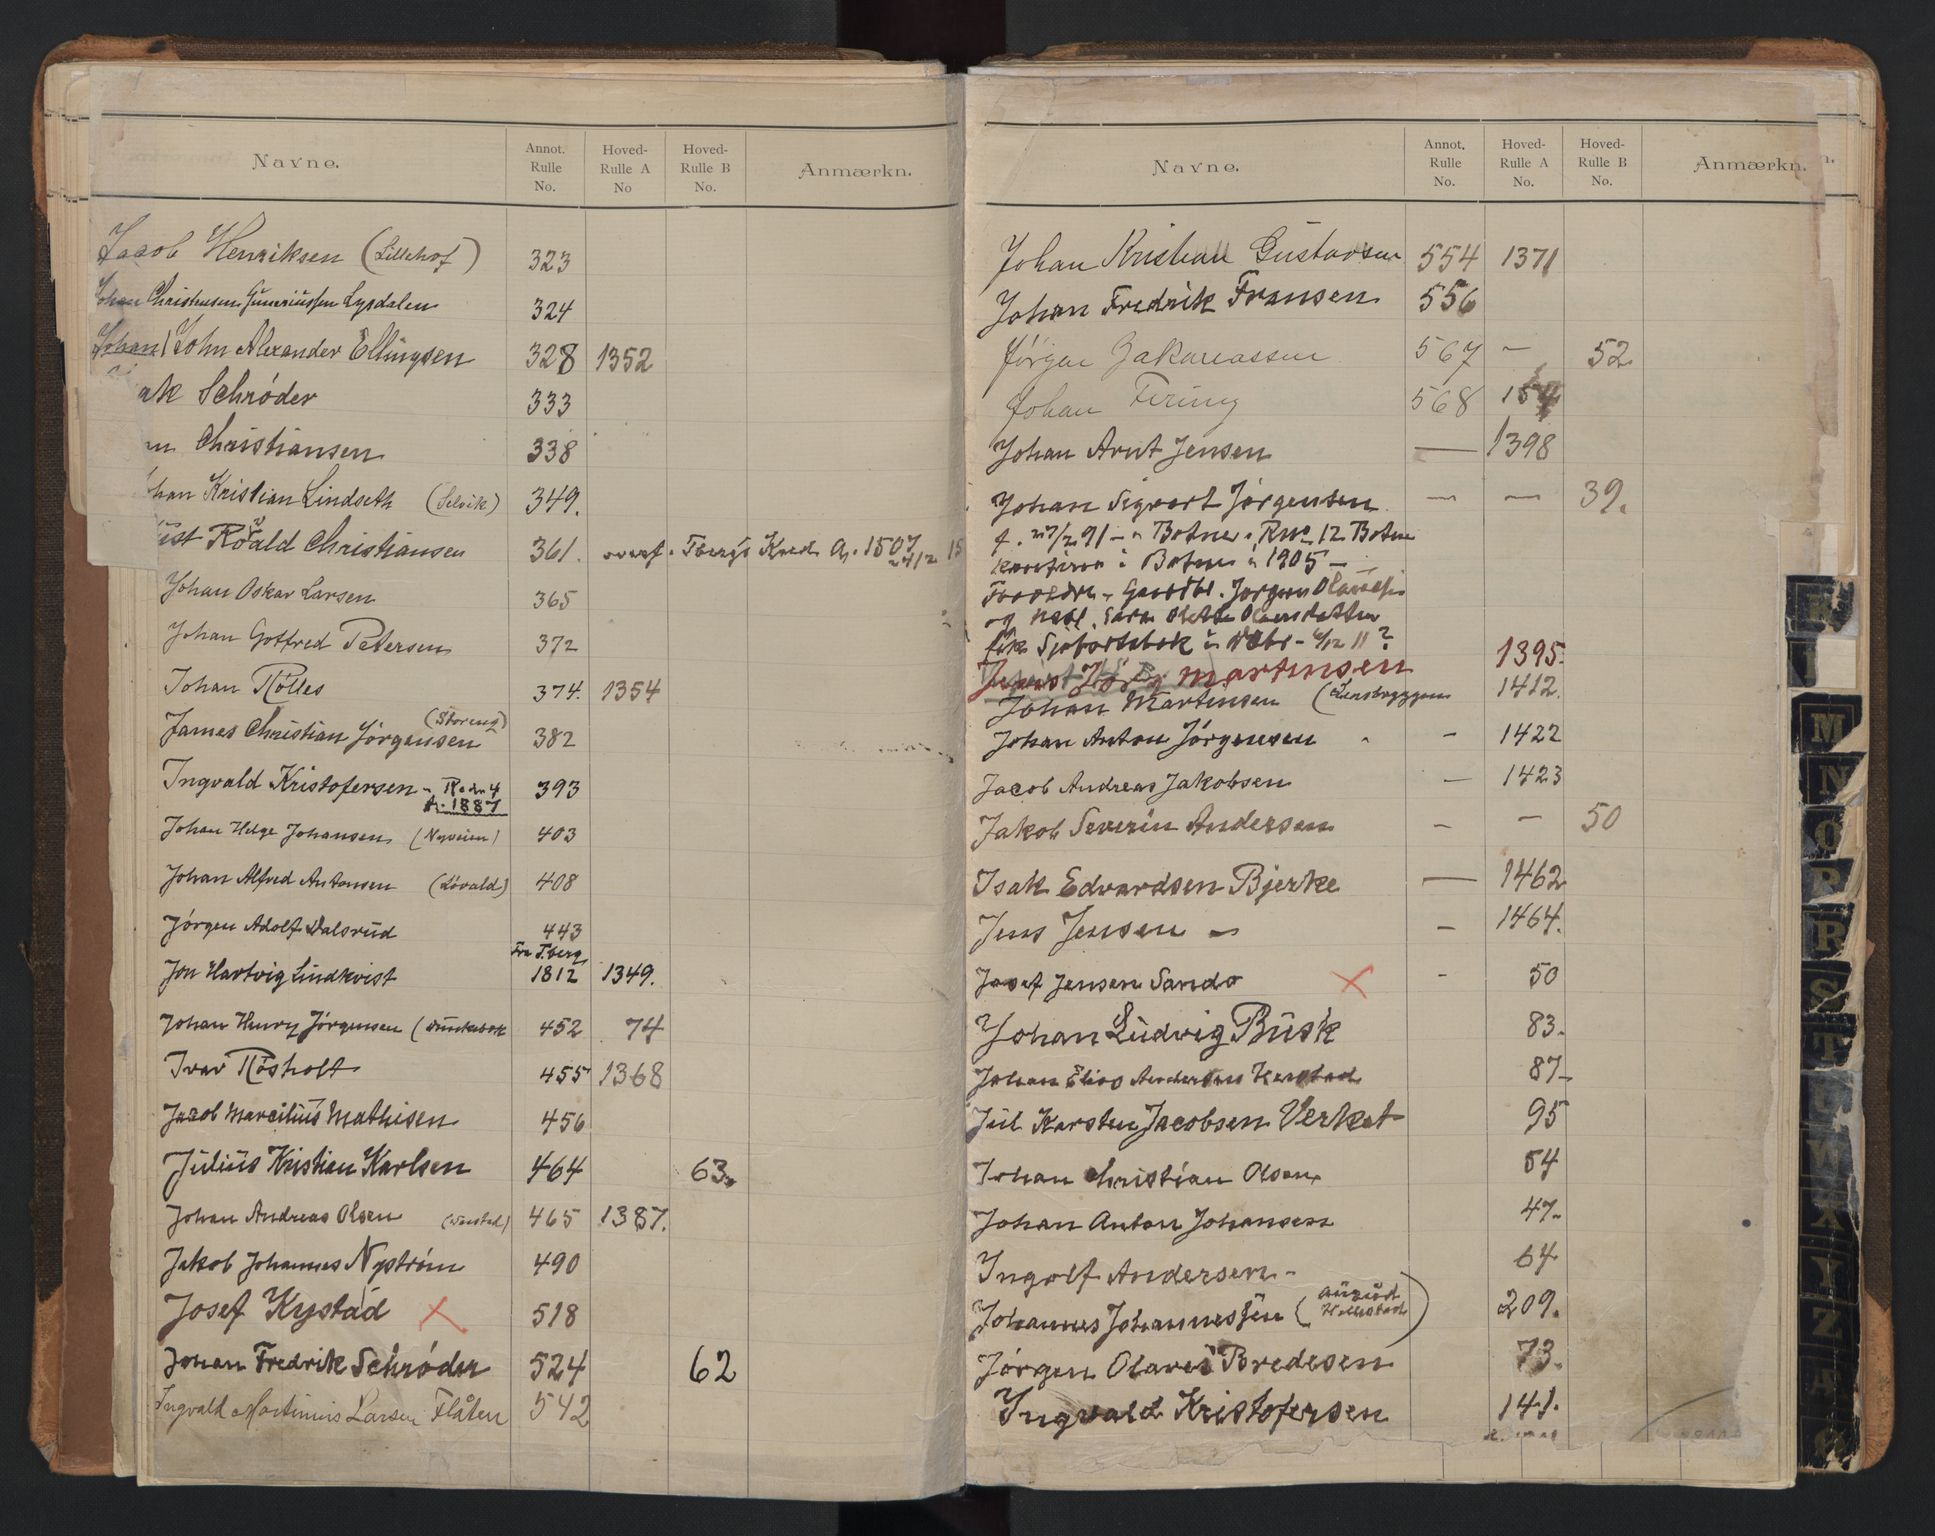 Navne. Annot. Rulle No. Hoved-Rulle A No Hoved-Rulle B No. Anmærkn.
Jacob Henriksen (Lillehof) 323
Johan Christensen Guneriussen Lysdalen 324
Johan) John Alexander Ellingsen 328 1352
ak Schrøder 333
n Christiansen 338
han Kristian Lindseth (Selvik) 349.
Roald Christiansen 361. overf. Tbergs Kred A. 1507
Johan Oskar Larsen 365
Johan Gotfred Petersen 372
Johan Rölles 374. 1354
(Storeng)
James Christian Jørgensen 382
Ingvald Kristofersen - R.d. 4 393
A. 1887
Johan Helge Johansen (Nyveien) 403
Johan Alfred Antonsen (Løvald) 408
Jørgen Adolf Dalsrud 443
Fra Tberg
Jon Hartvig Lindkvist 1812 1349.
Johan Henry Jørgensen 452 74
Ivar Røsholt 455 1368
Jacob Marcilius Mathisen 456
Julius Kristian Karlsen 464 63.
Johan Andreas Olsen 465 1387.
Jakob Johannes Nystrøm 490
Josef Kystad X 518
Johan Fredrik Schrøder 524 62
Ingvald Martinius Larsen Flåten 542
Navne. Annot. Rulle No. Hoved-Rulle A No. Hoved-Rulle B No. Anmærkn.
Johan Kristian Gustavsen 554 1371
Johan Fredrik Fransen 556
Jørgen Zakariassen 567 - 52.
Johan Firing 568 154
Johan Arnt Jensen — 1398
Johan Sigvart Jørgensen — — 39.
f. 27/2 91 - i Botne. Rue 12 Botne
konfirm i Botne i 1905 -
Forældre - Gaardbr. Jørgen Olausen
og
fik Sjøfartsbok i - 6/12 11?
Jørg Martinsen 1395.
Johan Martinsen 1412.
Johan Anton Jørgensen - 1422
Jacob Andreas Jakobsen — 1423
Jakob Severin Andersen - - 50
Isak Edvardsen Bjerke — 1462
Jens Jensen - - 1464.
Josef Jensen Sando X - 50
Johan Ludvig Busk 83.
Johan Elias Andersen 87-
Jul Karsten Jacobsen Verket 95
Johan Christian Olsen 54
Johan Anton Johansen 47.
Ingolf Andersen - 64
Johannes Johannessen 209.
Jørgen Olaves Bredesen 73.
Ingvald Kristofersen 141.
M
N
O
P
R
S
T
U
W
X
Y
Z